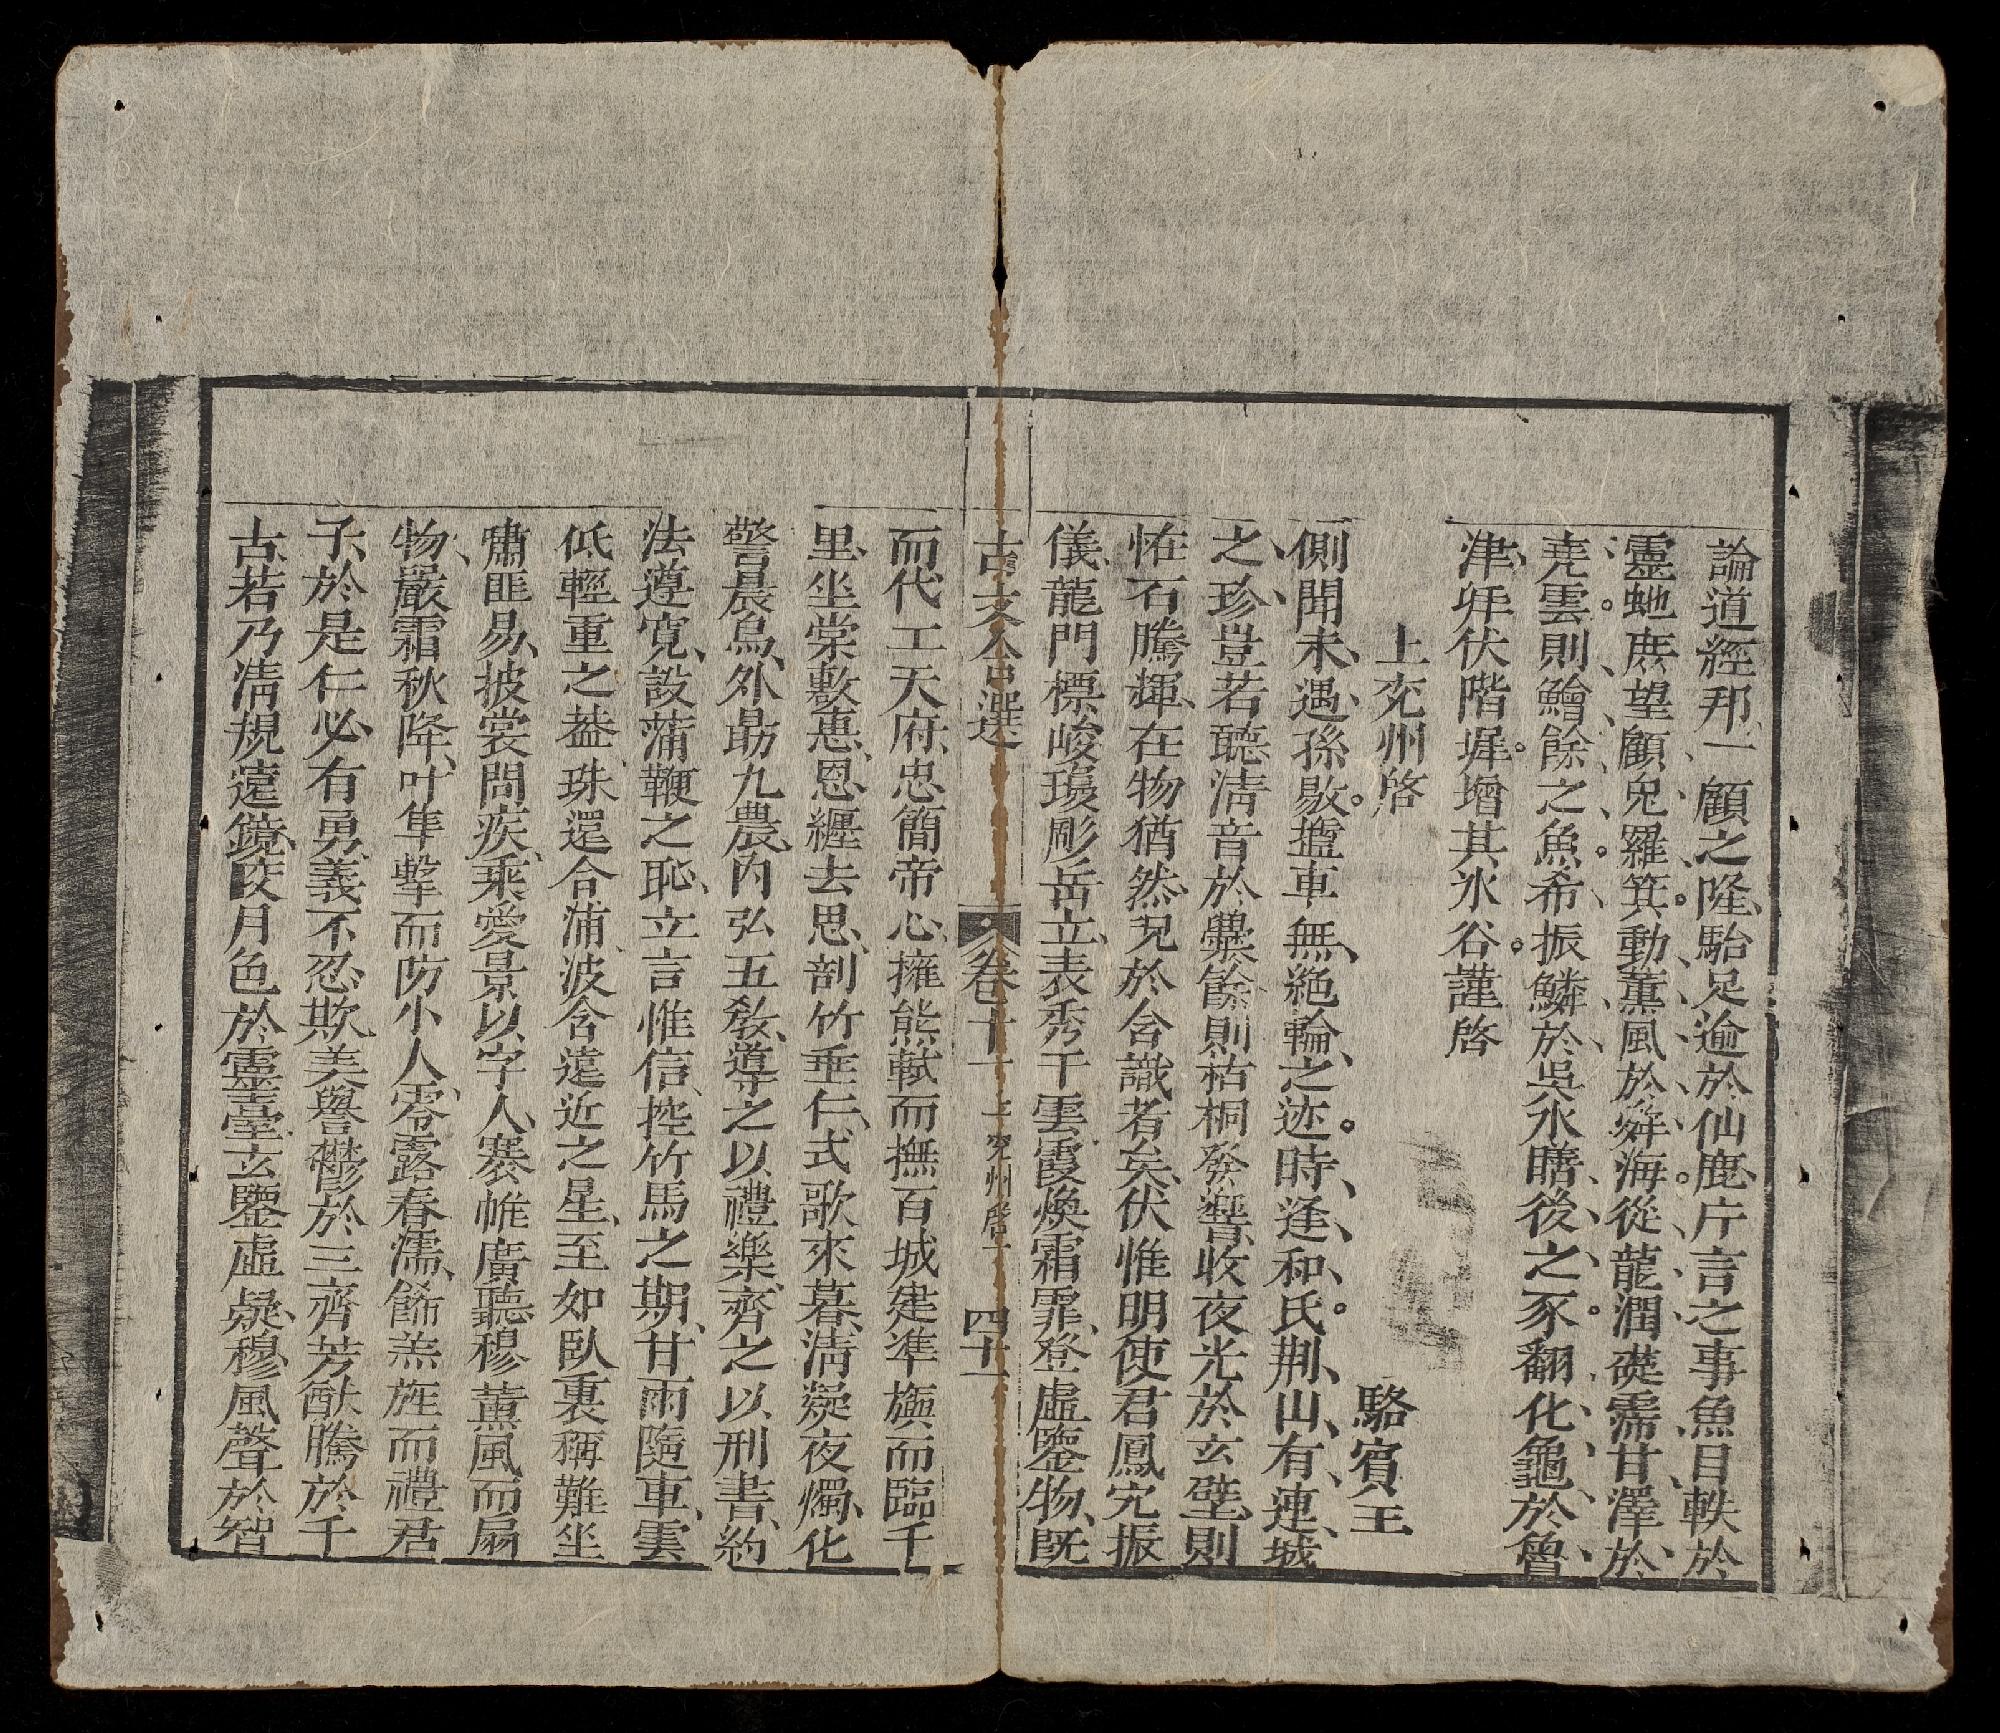 論道經邦一顧之隆駘足逾於仙鹿片言之事魚目軼於
靈虵庻望顧兎羅箕動薰風於舜海從龍潤礎霈甘澤於
堯雲則鱠餘之魚希振鱗於吳水膳後之豕翻化龜於魯
津拜伏階墀增其氷谷謹啓
上兖州啓
駱賓王
側聞未遇孫敭塩車無絶輪之迹時逢和氏荆山有連城
之珍豈若聽清音於爨餘則枯桐發響收夜光於玄壁則
恠石騰輝在物猶然况於含識者矣伏惟明使君鳳穴振
儀龍門標峻瓊彫岳立表秀千雲霞煥霜霏登虛鑒物既
古文合選
卷十一
上兖州啓
四十一
而代工天府忠簡帝心擁熊軾而撫百城建凖旟而臨千
里坐棠敷惠恩纒去思剖竹垂仁式歌來暮清凝夜燭化
警晨鳥外勗九農内弘五敎導之以禮樂齊之以刑書約
法遵寛設蒲鞭之恥立言惟信控竹馬之期甘雨隨車雲
低輕重之葢珠還合浦波含遠近之星至如臥裏稱難坐
嘯匪易披裳問疾乘愛景以字人褰帷廣聽穆薰風而扇
物嚴霜秋降叶隼擊而防小人零露春濡餙羔旌而禮君
子於是仁必有勇義不忍欺美譽鬱於三齊芳猷騰於千
古若乃淸規遠鏡皎月色於靈臺玄鑒虛凝穆風聲於智